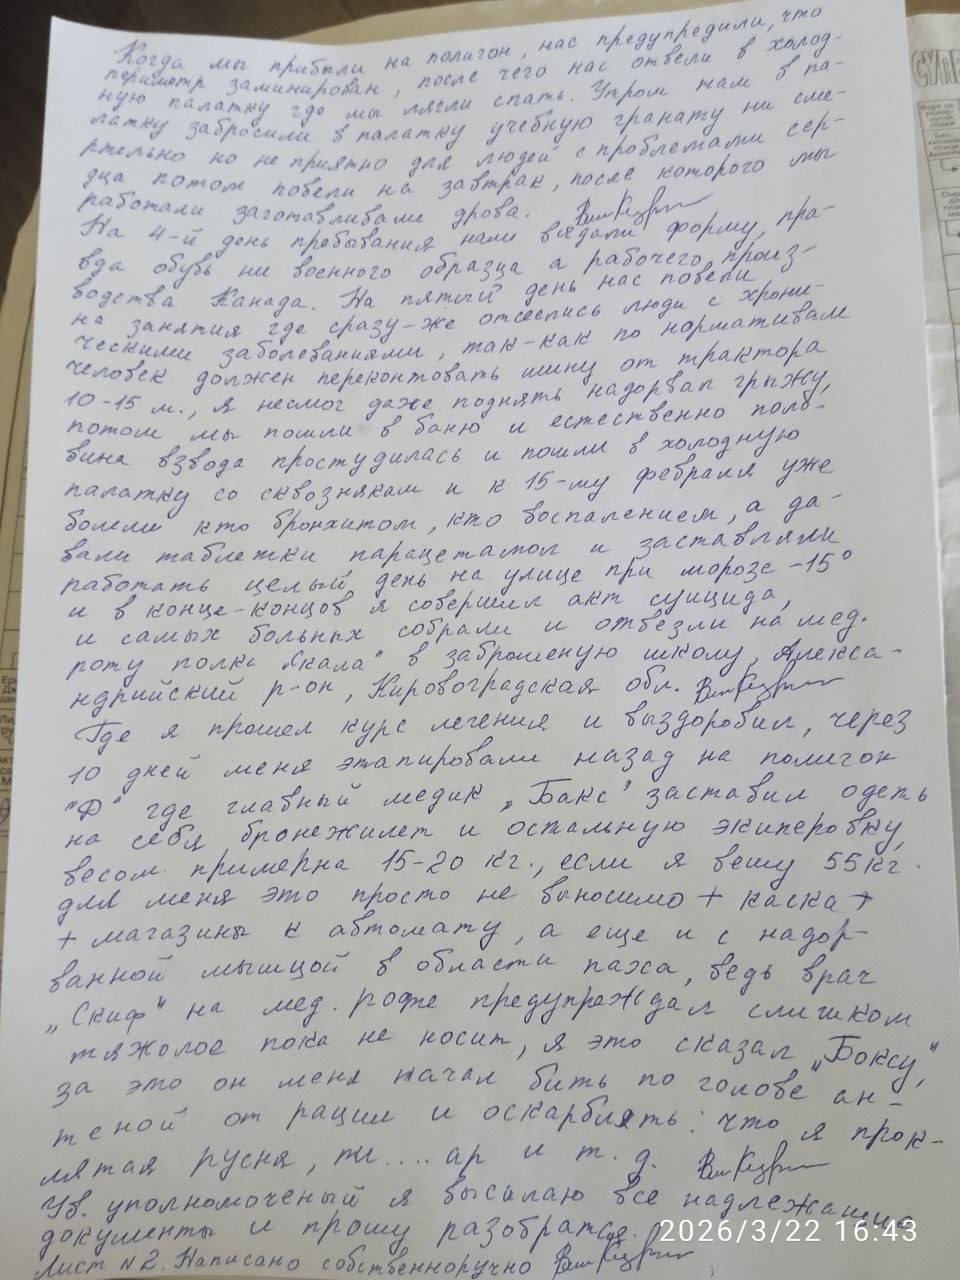 Когда мы прибыли на полигон, нас предупредили, что
периметр заминирован, после чего нас отвели в холод-
ную палатку где мы лягли спать. Утром нам в па-
латку забросили в палатку учебную гранату ни сме-
ртельно но не приятно для людей с проблемами сер-
дца потом повели на завтрак, после которого мы
работали заготавливали дрова.
На 4-й день пребывания нам выдали форму, пра-
вда обувь ни военного образца а рабочего произ-
водства Канада. На пятый день нас повели
на занятия где сразу-же отсеялись люди с хрони-
ческими заболеваниями, так-как по нормативам
человек должен перекантовать шину от трактора
10-15 м., я несмог даже поднять надорвал грыжу,
потом мы пошли в баню и естественно поло-
вина взвода простудилась и пошли в холодную
палатку со сквознякам и к 15-му февраля уже
болели кто бронхитом, кто воспалением, а да-
вали таблетки парацетамол и заставляли
работать целый день на улице при морозе -15°
и в конце-концов я совершил акт суицида,
и самых больных собрали и отвезли на мед.
роту полка „Скала" в заброшеную школу, Алекса-
ндрийский р-он, Кировоградская обл.
Где я прошел курс лечения и выздоровил, через
10 дней меня этапировали назад на полигон
"Ф" где главный медик „Бакс" заставил одеть
на себя бронежилет и остальную экиперовку,
весом примерна 15-20 кг., если я вешу 55 кг.
для меня это просто не выносимо + каска +
+ магазины к автомату, а еще и с надор-
ванной мышцой в области паха, ведь врач
„Скиф" на мед. роте предупреждал слишком
тяжолое пока не носит, я это сказал „Боксу",
за это он меня начал бить по голове ан-
теной от рации и оскарблять: что я прок-
лятая русня, ти....ар и т. д.
Ув. уполномоченый я высилаю все надлежащие
документы и прошу разобратся.
Лист N2. Написано собственноручно
2026/3/22 16:43